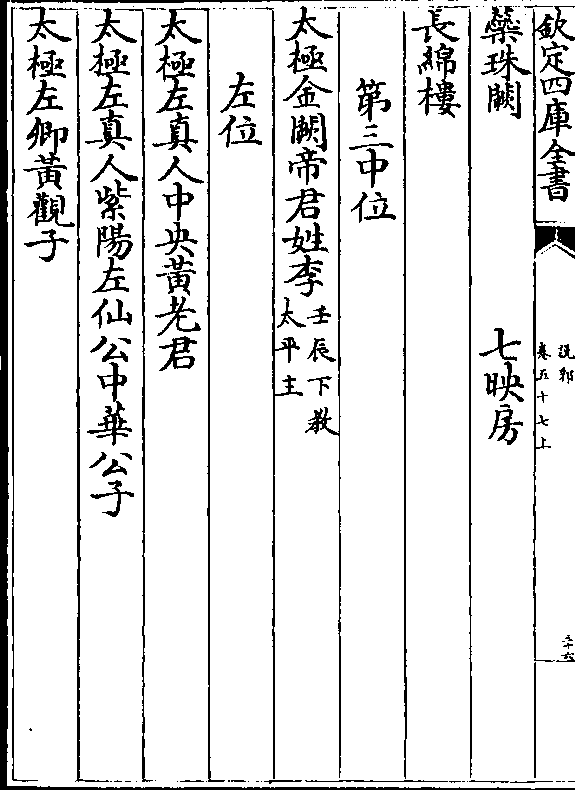 欽定四庫全書
說郛
卷五十七上
三十六
蘂珠闕 七映房
長綿樓
第三中位
太極金闕帝君姓李 壬辰下教
太平主
左位
太極左真人中央黃老君
太極左真人紫陽左仙公中華公子
太極左卿黃觀子